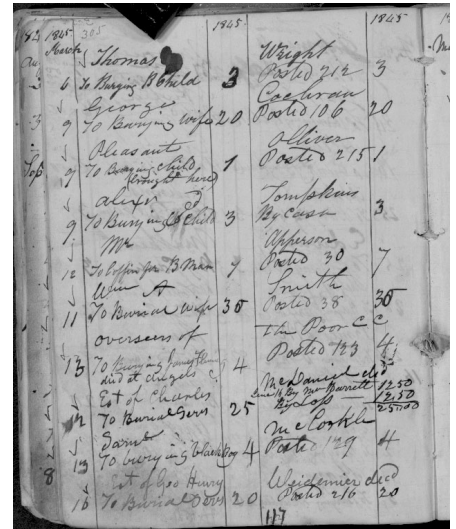 1845
305
1845
1845
March
Thomas Wright
6 To Burying B Child 3 Posted 212 3
George Cochran
9 To Burying wife 20 Posted 106 20
Pleasant Olliver
9 To Burying Child 1 Posted 215 1
(brought here)
Alexr Tompkins
9 To Burying B Child 3 By Cash 3
Mr Apperson
12 To Coffin for B Man 7 Posted 30 7
Wm A Smith
11 To Burial wife 30 Posted 38 30
overseers of The Poor C C
13 To Burying 4 Posted 123 4
died at
Est of Charles McDaniel decd
By Mr Barrett 12.50
12 To Burial Servs 25 By Loss 12.50
25.00
Saml McCorkle
13 To burying black boy 4 Posted 129 4
Est of Geo Henry Weidemier decd
16 To Burial Servs 20 Posted 216 20
117